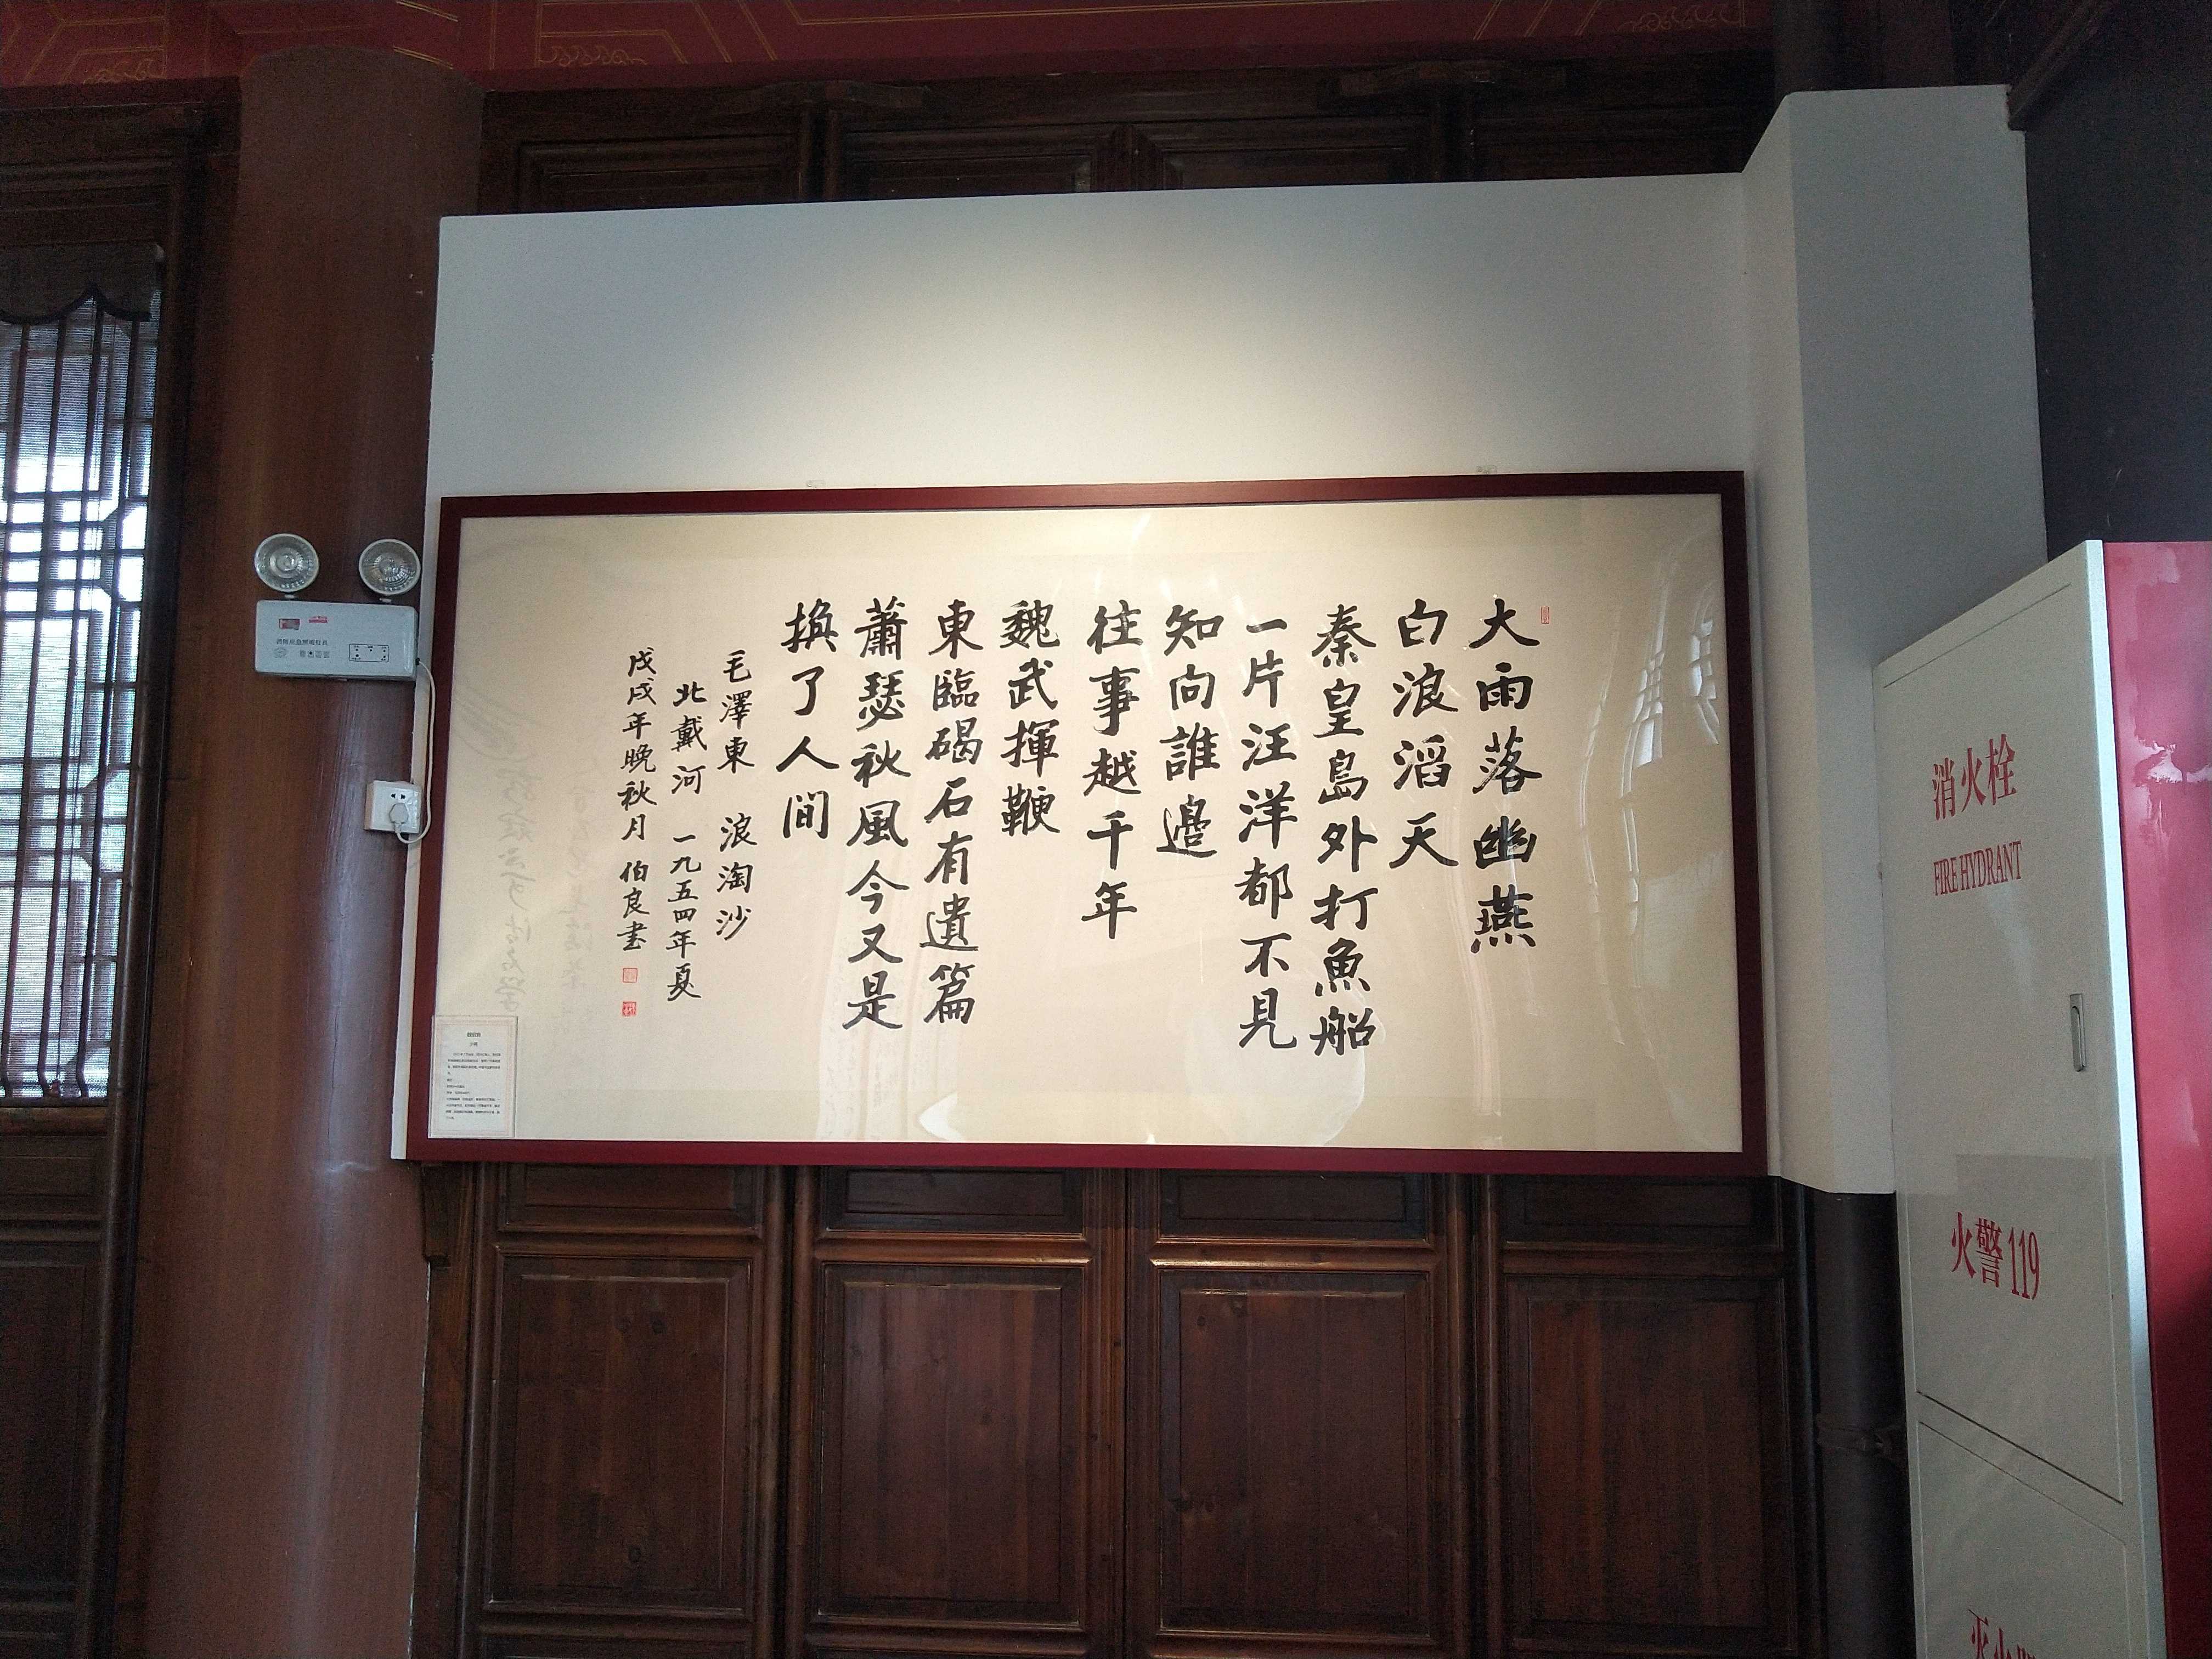 大雨落幽燕
白浪滔天
秦皇島外打魚船
一片汪洋都不見
知向誰邊
往事越千年
魏武揮鞭
東臨碣石有遺篇
蕭瑟秋風今又是
換了人間
毛澤東 浪淘沙
北戴河 一九五四年夏
戊戌年晚秋月 伯良書
消火栓
FIRE HYDRANT
火警119